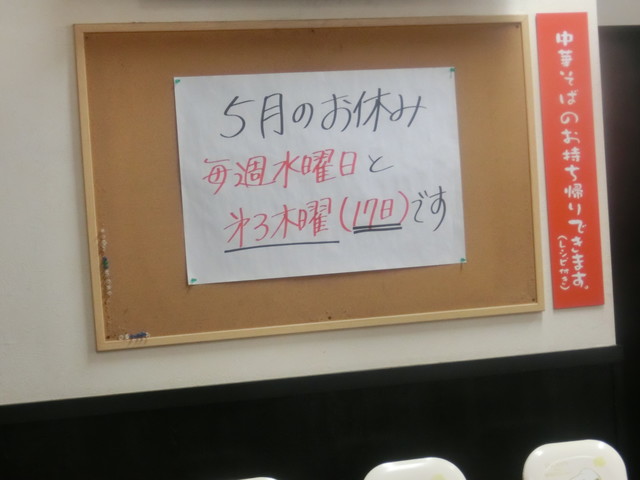 5月のお休み
毎週水曜日と
第3木曜(17日)です
中華そばのお持ち帰りできます。
(レシピ付き)